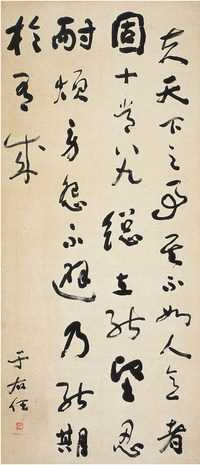 夫天下之事其不如人意者
固十常八九總在能堅忍
耐煩勞怨不避乃能期
於有成
于右任